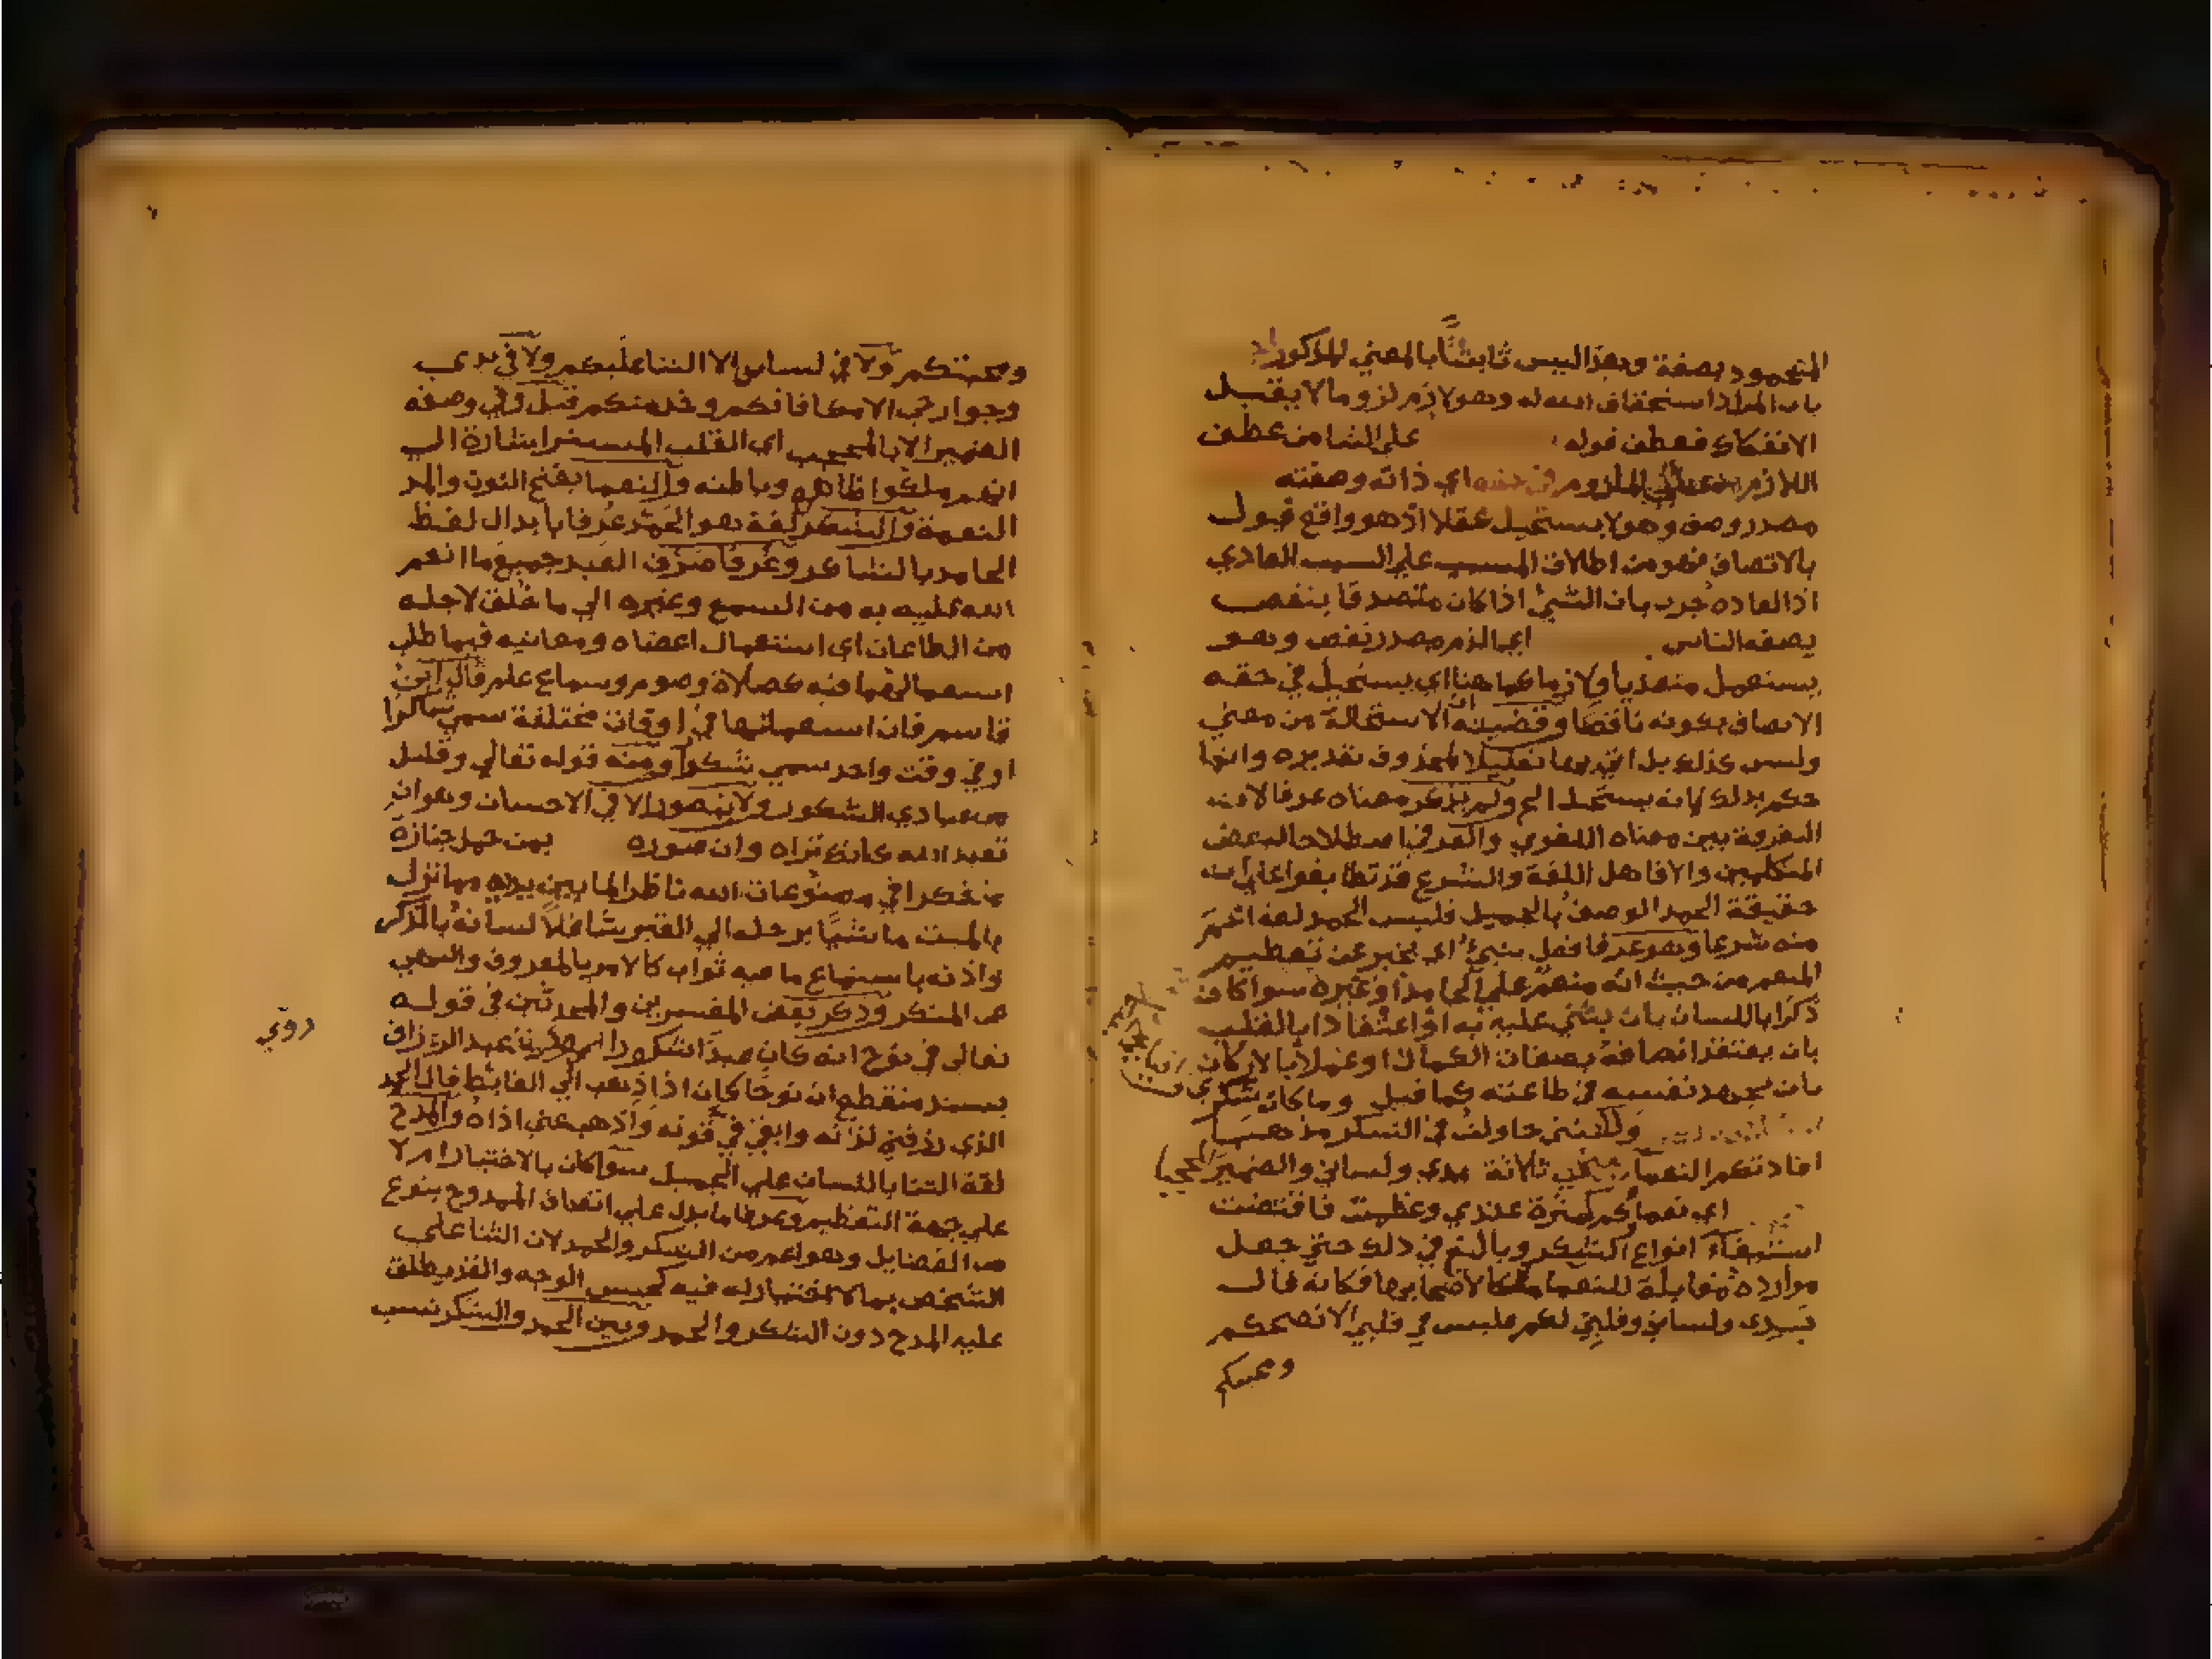 المحمود بصفة وهذا ليس ثابتًا بالمعني المذكور
بان المراد استحقاق الله له وهو لازم لزوما لا يقبل
الانفكاك فعطف قوله على الثنا من عطف
اللازم علي الملزوم في حقه اي ذاته وصفته
مصدر وصف وهو لا يستحيل عقلا اذ هو واقع قبول
بالاتصاف فهو من اطلاق المسبب علي السبب العادي
اذ العاده جرت بان الشئ اذا كان متصفا بنقص
يصفه الناس اي الذم مصدر نقص وهو
يستعمل متعديا ولازما كما هنا اي يستحيل في حقه
الاتصاف بكونه ناقصا وقضيته ان الاستحالة من معني
وليس كذلك بل اتي بها تعليلا لمحذوف تقديره وانها
حكم بذلك لانه يستحيل الخ ولم يذكر معناه عرفا لان
التفرقة بين معناه اللغوي والعرفي اصطلاح لبعض
المتكلمين والا فاهل اللغة والشرع قد تطابقوا علي ان
حقيقة الحمد الوصف بالجميل فليس الحمد لغة اعم
منه شرعا وهو عرفا فعل ينبئ اي يخبر عن تعظيم
المنعم من حيث انه منعم علي الحامد او غيره سوا كان
ذكرا باللسان بان يثني عليه به او اعتقادا بالقلب
بان يعتقد اتصافه بصفات الكمال او عملا بالاركان
بان يجهد نفسه في طاعته كما قيل وما كان شكري
ولكنني حاولت في الشكر مذهبا
افادتكم النعماء مني ثلاثة يدي ولساني والضمير المحجبا
اي نعماكم كثرة عندي وعظمت فاقتضت
استيفاء انواع الشكر وبالغ في ذلك حتي جعل
موارده مقابلة للنعما ملكا لاصحابها فكانه قال
يدي ولساني وقلبي لكم فليس في قلبي الا نصحكم
ومحبتكم
ومحبتكم ولا في لساني الا الثنا عليكم ولا في يدي
وجوارحي الا مكافاتكم وخدمتكم قيل وفي وصفه
الضمير الا بالمحجب اي القلب المستتر اشارة الي
انهم ملكوا ظاهره وباطنه والنعما بفتح النون والمد
النعمة والشكر لغة هو الحمد عرفا بابدال لفظ
الحامد بالشاكر وعرفا صرف العبد جميع ما انعم
الله عليه به من السمع وغيره الي ما خلق لاجله
من الطاعات اي استعمال اعضاه ومعانيه فيما طلب
استعمالها فيه كصلاة وصوم وسماع علم قال ابن
قاسم فان استعملها في اوقات مختلفة سمي شاكرا
او في وقت واحد سمي شكورا ومنه قوله تعالي وقليل
من عبادي الشكور ولا يتصور الا في الاحسان وهو ان
تعبد الله كانك تراه وان صوره بمن حمل جنازة
متفكرا في مصنوعات الله ناظرا لما بين يديه مما نزل
بالميت ماشيًا برجله الي القبر شاغلا لسانه بالذكر
واذنه باستماع ما فيه ثواب كالامر بالمعروف والنهي
عن المنكر وذكر بعض المفسرين والمحدثين في قوله
تعالى في نوح انه كان عبدا شكورا عبد الرزاق
روي
بسند منقطع ان نوحا كان اذا ذهب الي الغائط قال الحمد
الذي رزقني لذته وابقى في قوته واذهب عني اذاه والمدح
لغة الثنا باللسان علي الجميل سوا كان بالاختيار ام لا
علي جهة التعظيم وعرفا ما يدل علي اتصاف الممدوح بنوع
من الفضايل وهو اعم من الشكر والحمد لان الثنا علي
الشخص بما لا اختيار له فيه كحسن الوجه والقد يطلق
عليه المدح دون الشكر والحمد وبين الحمد والشكر نسب